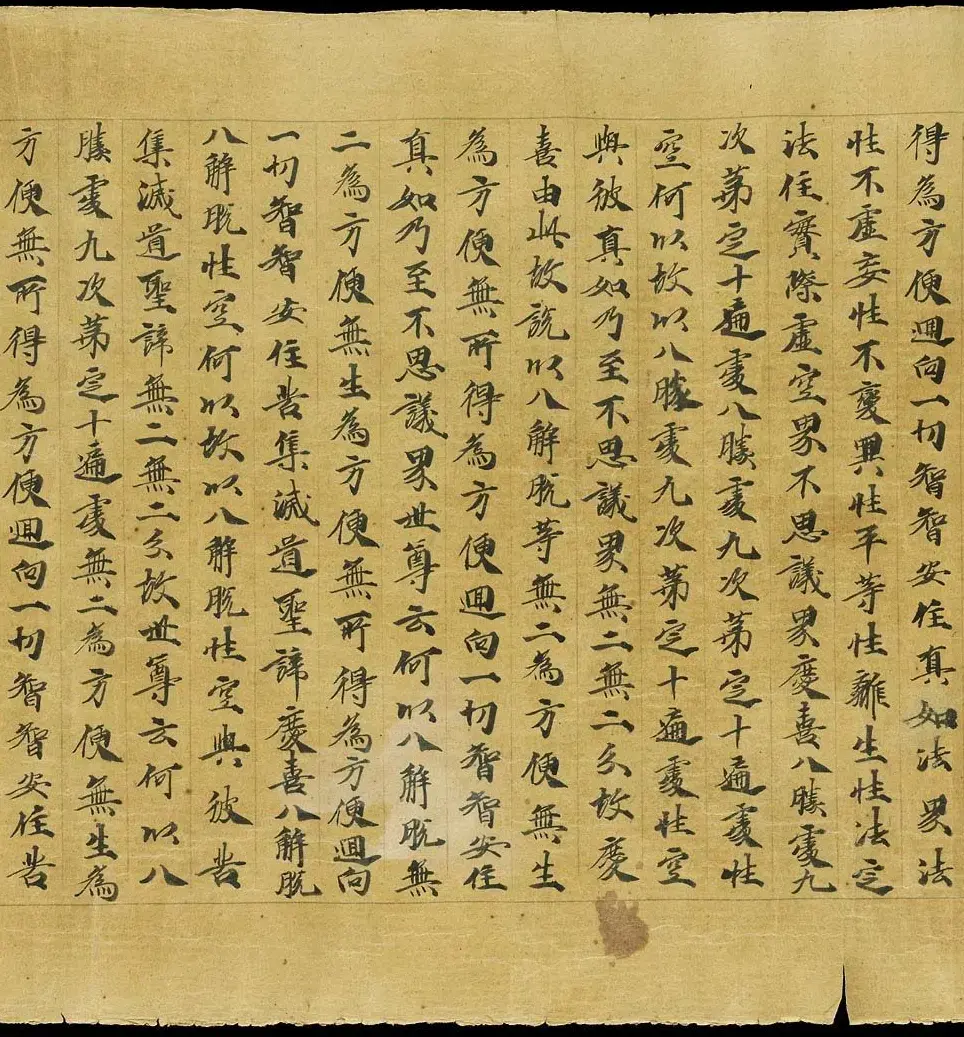 得為方便迴向一切智智安住真如法界法
性不虛妄性不變異性平等性離生性法定
法住實際虛空界不思議界慶喜八勝處九
次第定十遍處八勝處九次第定十遍處性
空何以故以八勝處九次第定十遍處性空
與彼真如乃至不思議界無二無二分故慶
喜由此故說以八解脫等無二為方便無生
為方便無所得為方便迴向一切智智安住
真如乃至不思議界世尊云何以八解脫無
二為方便無生為方便無所得為方便迴向
一切智智安住苦集滅道聖諦慶喜八解脫
八解脫性空何以故以八解脫性空與彼苦
集滅道聖諦無二無二分故世尊云何以八
勝處九次第定十遍處無二為方便無生為
方便無所得為方便迴向一切智智安住苦